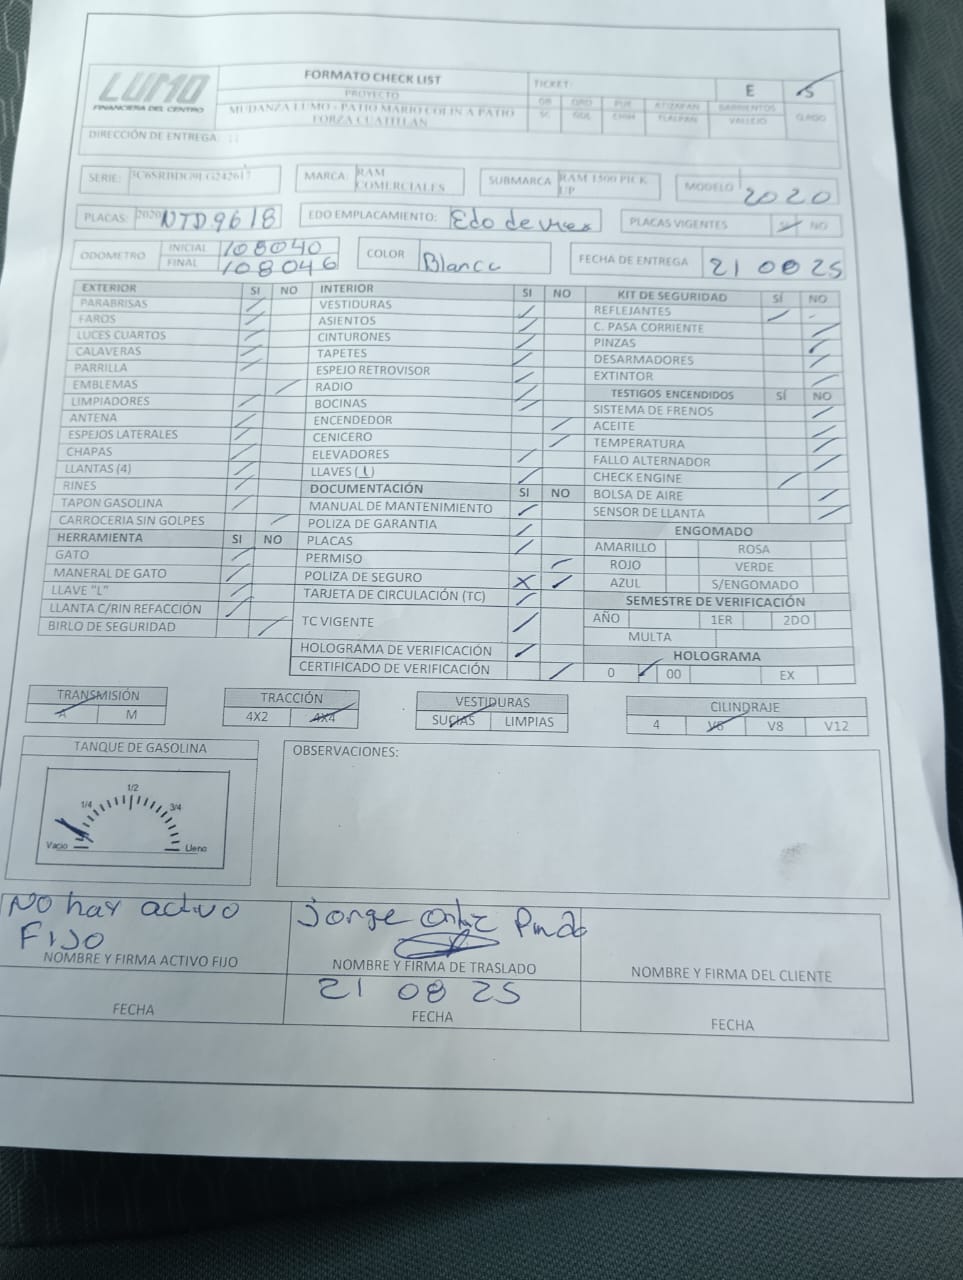 LUMO
FINANCIERA DEL CENTRO
FORMATO CHECK LIST
PROYECTO
MUDANZA LUMO - PATIO MARIO COLIN A PATIO
FORZA CUATITLAN
TICKET:
E S
GDL CHIH TLALPAN VALLEJO
DIRECCIÓN DE ENTREGA:
SERIE:
MARCA: RAM COMERCIALES
SUBMARCA RAM 1500 PICK UP
MODELO 2020
PLACAS: NTD9618
EDO EMPLACAMIENTO: Edo de mex
PLACAS VIGENTES SI NO
ODOMETRO INICIAL 108040
FINAL 108046
COLOR Blanca
FECHA DE ENTREGA 21 08 25
EXTERIOR SI NO
PARABRISAS
FAROS
LUCES CUARTOS
CALAVERAS
PARRILLA
EMBLEMAS
LIMPIADORES
ANTENA
ESPEJOS LATERALES
CHAPAS
LLANTAS (4)
RINES
TAPON GASOLINA
CARROCERIA SIN GOLPES
HERRAMIENTA SI NO
GATO
MANERAL DE GATO
LLAVE "L"
LLANTA C/RIN REFACCIÓN
BIRLO DE SEGURIDAD
INTERIOR SI NO
VESTIDURAS
ASIENTOS
CINTURONES
TAPETES
ESPEJO RETROVISOR
RADIO
BOCINAS
ENCENDEDOR
CENICERO
ELEVADORES
LLAVES (1)
DOCUMENTACIÓN SI NO
MANUAL DE MANTENIMIENTO
POLIZA DE GARANTIA
PLACAS
PERMISO
POLIZA DE SEGURO
TARJETA DE CIRCULACIÓN (TC)
TC VIGENTE
HOLOGRAMA DE VERIFICACIÓN
CERTIFICADO DE VERIFICACIÓN
KIT DE SEGURIDAD SÍ NO
REFLEJANTES
C. PASA CORRIENTE
PINZAS
DESARMADORES
EXTINTOR
TESTIGOS ENCENDIDOS SÍ NO
SISTEMA DE FRENOS
ACEITE
TEMPERATURA
FALLO ALTERNADOR
CHECK ENGINE
BOLSA DE AIRE
SENSOR DE LLANTA
ENGOMADO
AMARILLO ROSA
ROJO VERDE
AZUL S/ENGOMADO
SEMESTRE DE VERIFICACIÓN
AÑO 1ER 2DO
MULTA
HOLOGRAMA
0 00 EX
TRANSMISIÓN
A M
TRACCIÓN
4X2 4X4
VESTIDURAS
SUCIAS LIMPIAS
CILINDRAJE
4 V6 V8 V12
TANQUE DE GASOLINA
1/2
1/4 3/4
Vacio Lleno
OBSERVACIONES:
No hay activo
FIJO
NOMBRE Y FIRMA ACTIVO FIJO
FECHA
Jorge
NOMBRE Y FIRMA DE TRASLADO
21 08 25
FECHA
NOMBRE Y FIRMA DEL CLIENTE
FECHA